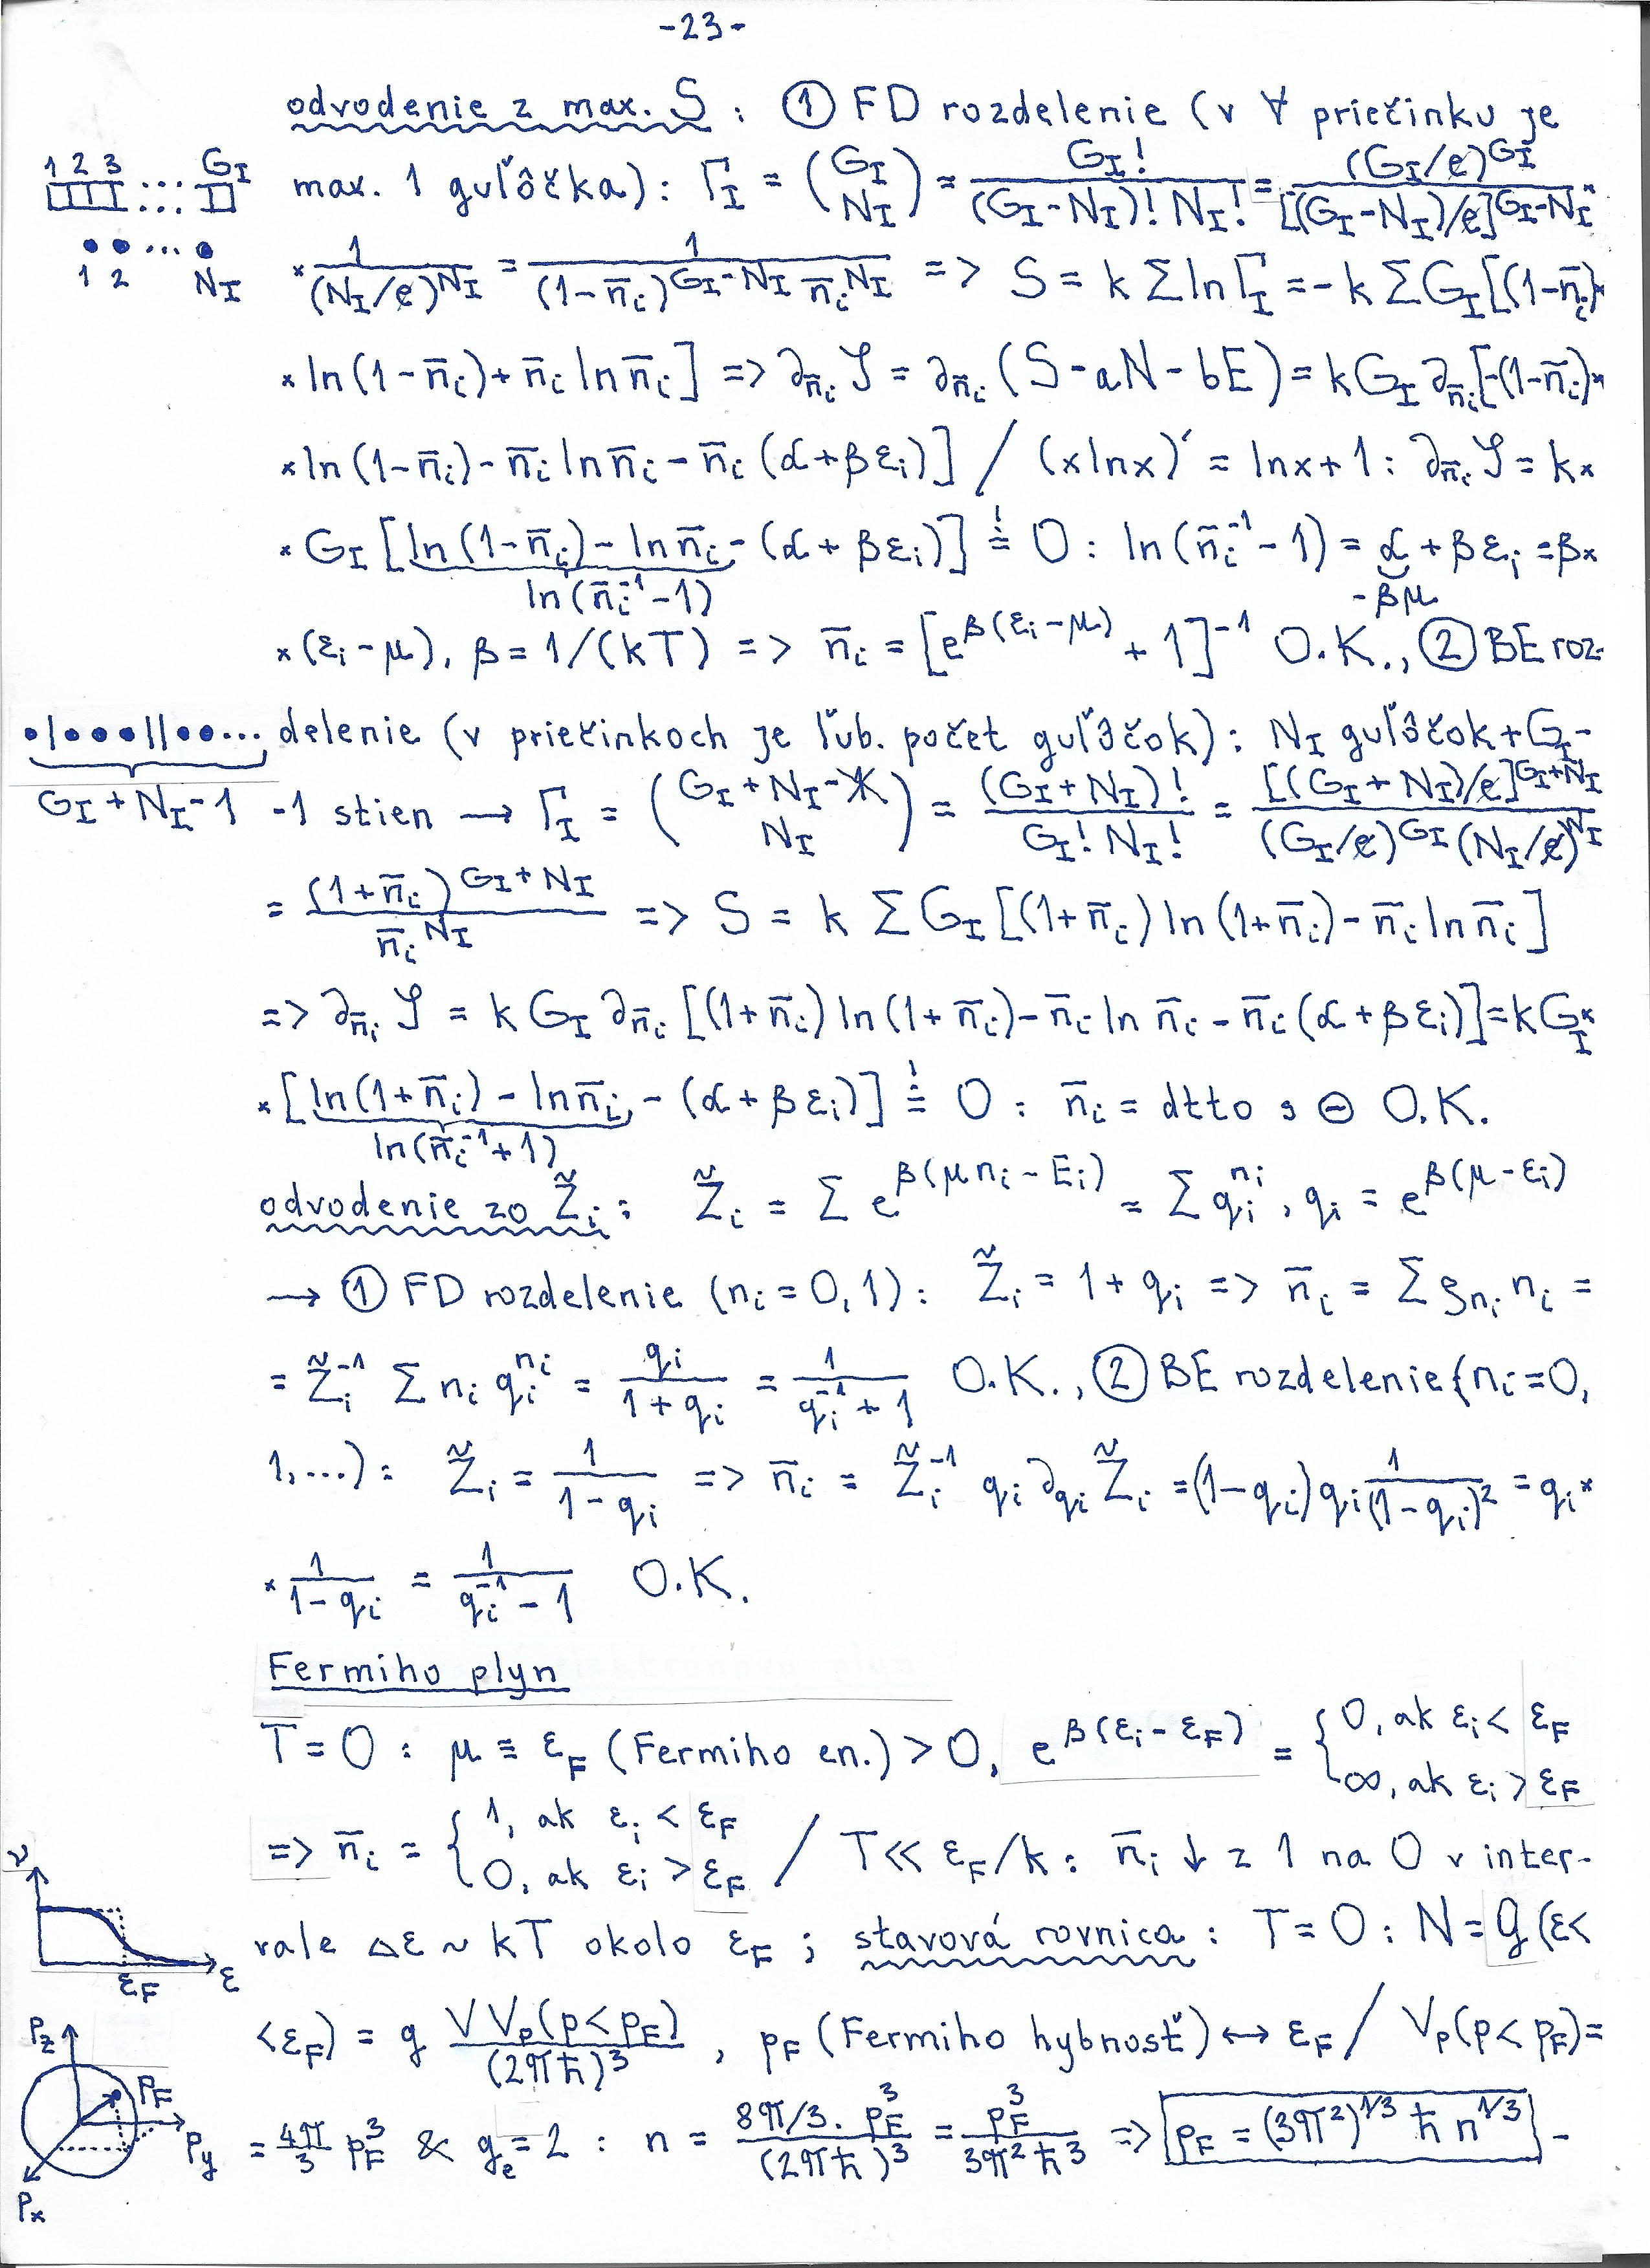 -23-
odvodenie z max. S : ① FD rozdelenie (v ∀ priečinku je
1 2 3 ... G_I
max. 1 guľôčka) : Γ_I = (G_I über N_I) = G_I! / ((G_I-N_I)! N_I!) = (G_I/e)^{G_I} / [(G_I-N_I)/e]^{G_I-N_I} ×
1 2 N_I
× 1/(N_I/e)^{N_I} = 1/((1-n̄_i)^{G_I-N_I} n̄_i^{N_I}) => S = k Σ ln Γ_I = -k Σ G_I [(1-n̄_i)×
× ln(1-n̄_i) + n̄_i ln n̄_i] => ∂_{n̄_i} 𝒮 = ∂_{n̄_i} (S-aN-bE) = kG_I ∂_{n̄_i}[-(1-n̄_i)×
× ln(1-n̄_i) - n̄_i ln n̄_i - n̄_i (α+βε_i)] / (x ln x)' = ln x + 1 : ∂_{n̄_i} 𝒮 = k×
× G_I [ln(1-n̄_i) - ln n̄_i - (α+βε_i)] ≐! 0 : ln(n̄_i^{-1} - 1) = α + βε_i = β×
ln(n̄_i^{-1} - 1)
-βμ
× (ε_i-μ), β = 1/(kT) => n̄_i = [e^{β(ε_i-μ)} + 1]^{-1} O.K., ② BE roz-
•|•••||••...
delenie (v priečinkoch je ľub. počet guľôčok) : N_I guľôčok + G_I -
G_I + N_I - 1
-1 stien → Γ_I = (G_I + N_I - 1 über N_I) = (G_I+N_I)! / (G_I! N_I!) = [(G_I+N_I)/e]^{G_I+N_I} / ((G_I/e)^{G_I} (N_I/e)^{N_I})
= (1+n̄_i)^{G_I+N_I} / n̄_i^{N_I} => S = k Σ G_I [(1+n̄_i) ln(1+n̄_i) - n̄_i ln n̄_i]
=> ∂_{n̄_i} 𝒮 = k G_I ∂_{n̄_i} [(1+n̄_i) ln(1+n̄_i) - n̄_i ln n̄_i - n̄_i (α+βε_i)] = kG_I×
× [ln(1+n̄_i) - ln n̄_i - (α+βε_i)] ≐! 0 : n̄_i = dtto s ⊖ O.K.
ln(n̄_i^{-1} + 1)
odvodenie zo Z̃_i : Z̃_i = Σ e^{β(μn_i - E_i)} = Σ q_i^{n_i}, q_i = e^{β(μ-ε_i)}
→ ① FD rozdelenie (n_i = 0,1) : Z̃_i = 1 + q_i => n̄_i = Σ ρ_{n_i} n_i =
= Z̃_i^{-1} Σ n_i q_i^{n_i} = q_i/(1+q_i) = 1/(q_i^{-1} + 1) O.K., ② BE rozdelenie (n_i = 0,
1,...) : Z̃_i = 1/(1-q_i) => n̄_i = Z̃_i^{-1} q_i ∂_{q_i} Z̃_i = (1-q_i) q_i 1/(1-q_i)² = q_i×
× 1/(1-q_i) = 1/(q_i^{-1} - 1) O.K.
Fermiho plyn
T = 0 : μ ≡ ε_F (Fermiho en.) > 0, e^{β(ε_i-ε_F)} = { 0, ak ε_i < ε_F
∞, ak ε_i > ε_F
=> n̄_i = { 1, ak ε_i < ε_F
0, ak ε_i > ε_F / T ≪ ε_F/k : n̄_i ↓ z 1 na 0 v inter-
ν
vale Δε ~ kT okolo ε_F ; stavová rovnica : T = 0 : N = g (ε<
ε_F ε
<ε_F) = g V V_p(p<p_F) / (2πħ)³, p_F (Fermiho hybnosť) ↔ ε_F / V_p(p<p_F) =
p_z
p_F
p_y
p_x
= 4π/3 p_F³ & g_e = 2 : n = 8π/3 . p_F³ / (2πħ)³ = p_F³ / (3π²ħ³) => p_F = (3π²)^{1/3} ħ n^{1/3} -